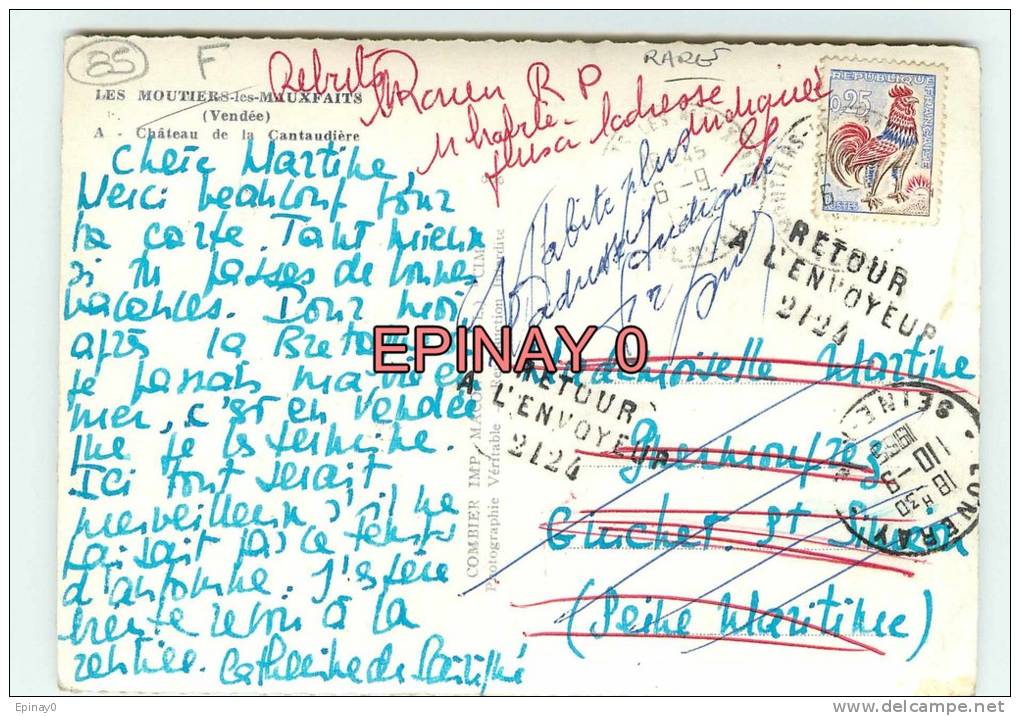 85
F
RARE
LES MOUTIERS-les-MAUXFAITS
(Vendée)
A - Château de la Cantaudière
Chère Martine,
Merci beaucoup pour
ta carte. Tant mieux
si tu passes de bonnes
vacances. Pour moi,
après la Bretagne
je passais ma vie en
mer, c'est en Vendée
que je la termine.
Ici tout serait
merveilleux s'il ne
faisait pas ce temps
d'automne. J'espère
te
à la
rentrée. Catherine de
Rebuts
Rouen R P
N'habite
plus à l'adresse
indiquée
N'habite plus
à l'adresse indiquée
REPUBLIQUE FRANÇAISE
0,25
POSTES
RETOUR
A L'ENVOYEUR
2124
EPINAY 0
RETOUR
A L'ENVOYEUR
2124
Mademoiselle Martine
Guichet St Simon
(Seine Maritime)
18 H 30
11 10 - 9
1965
LUNERAY
SEINE
6 - 9
COMBIER IMP. MACON
Photographie Véritable - Reproduction interdite
Epinay0